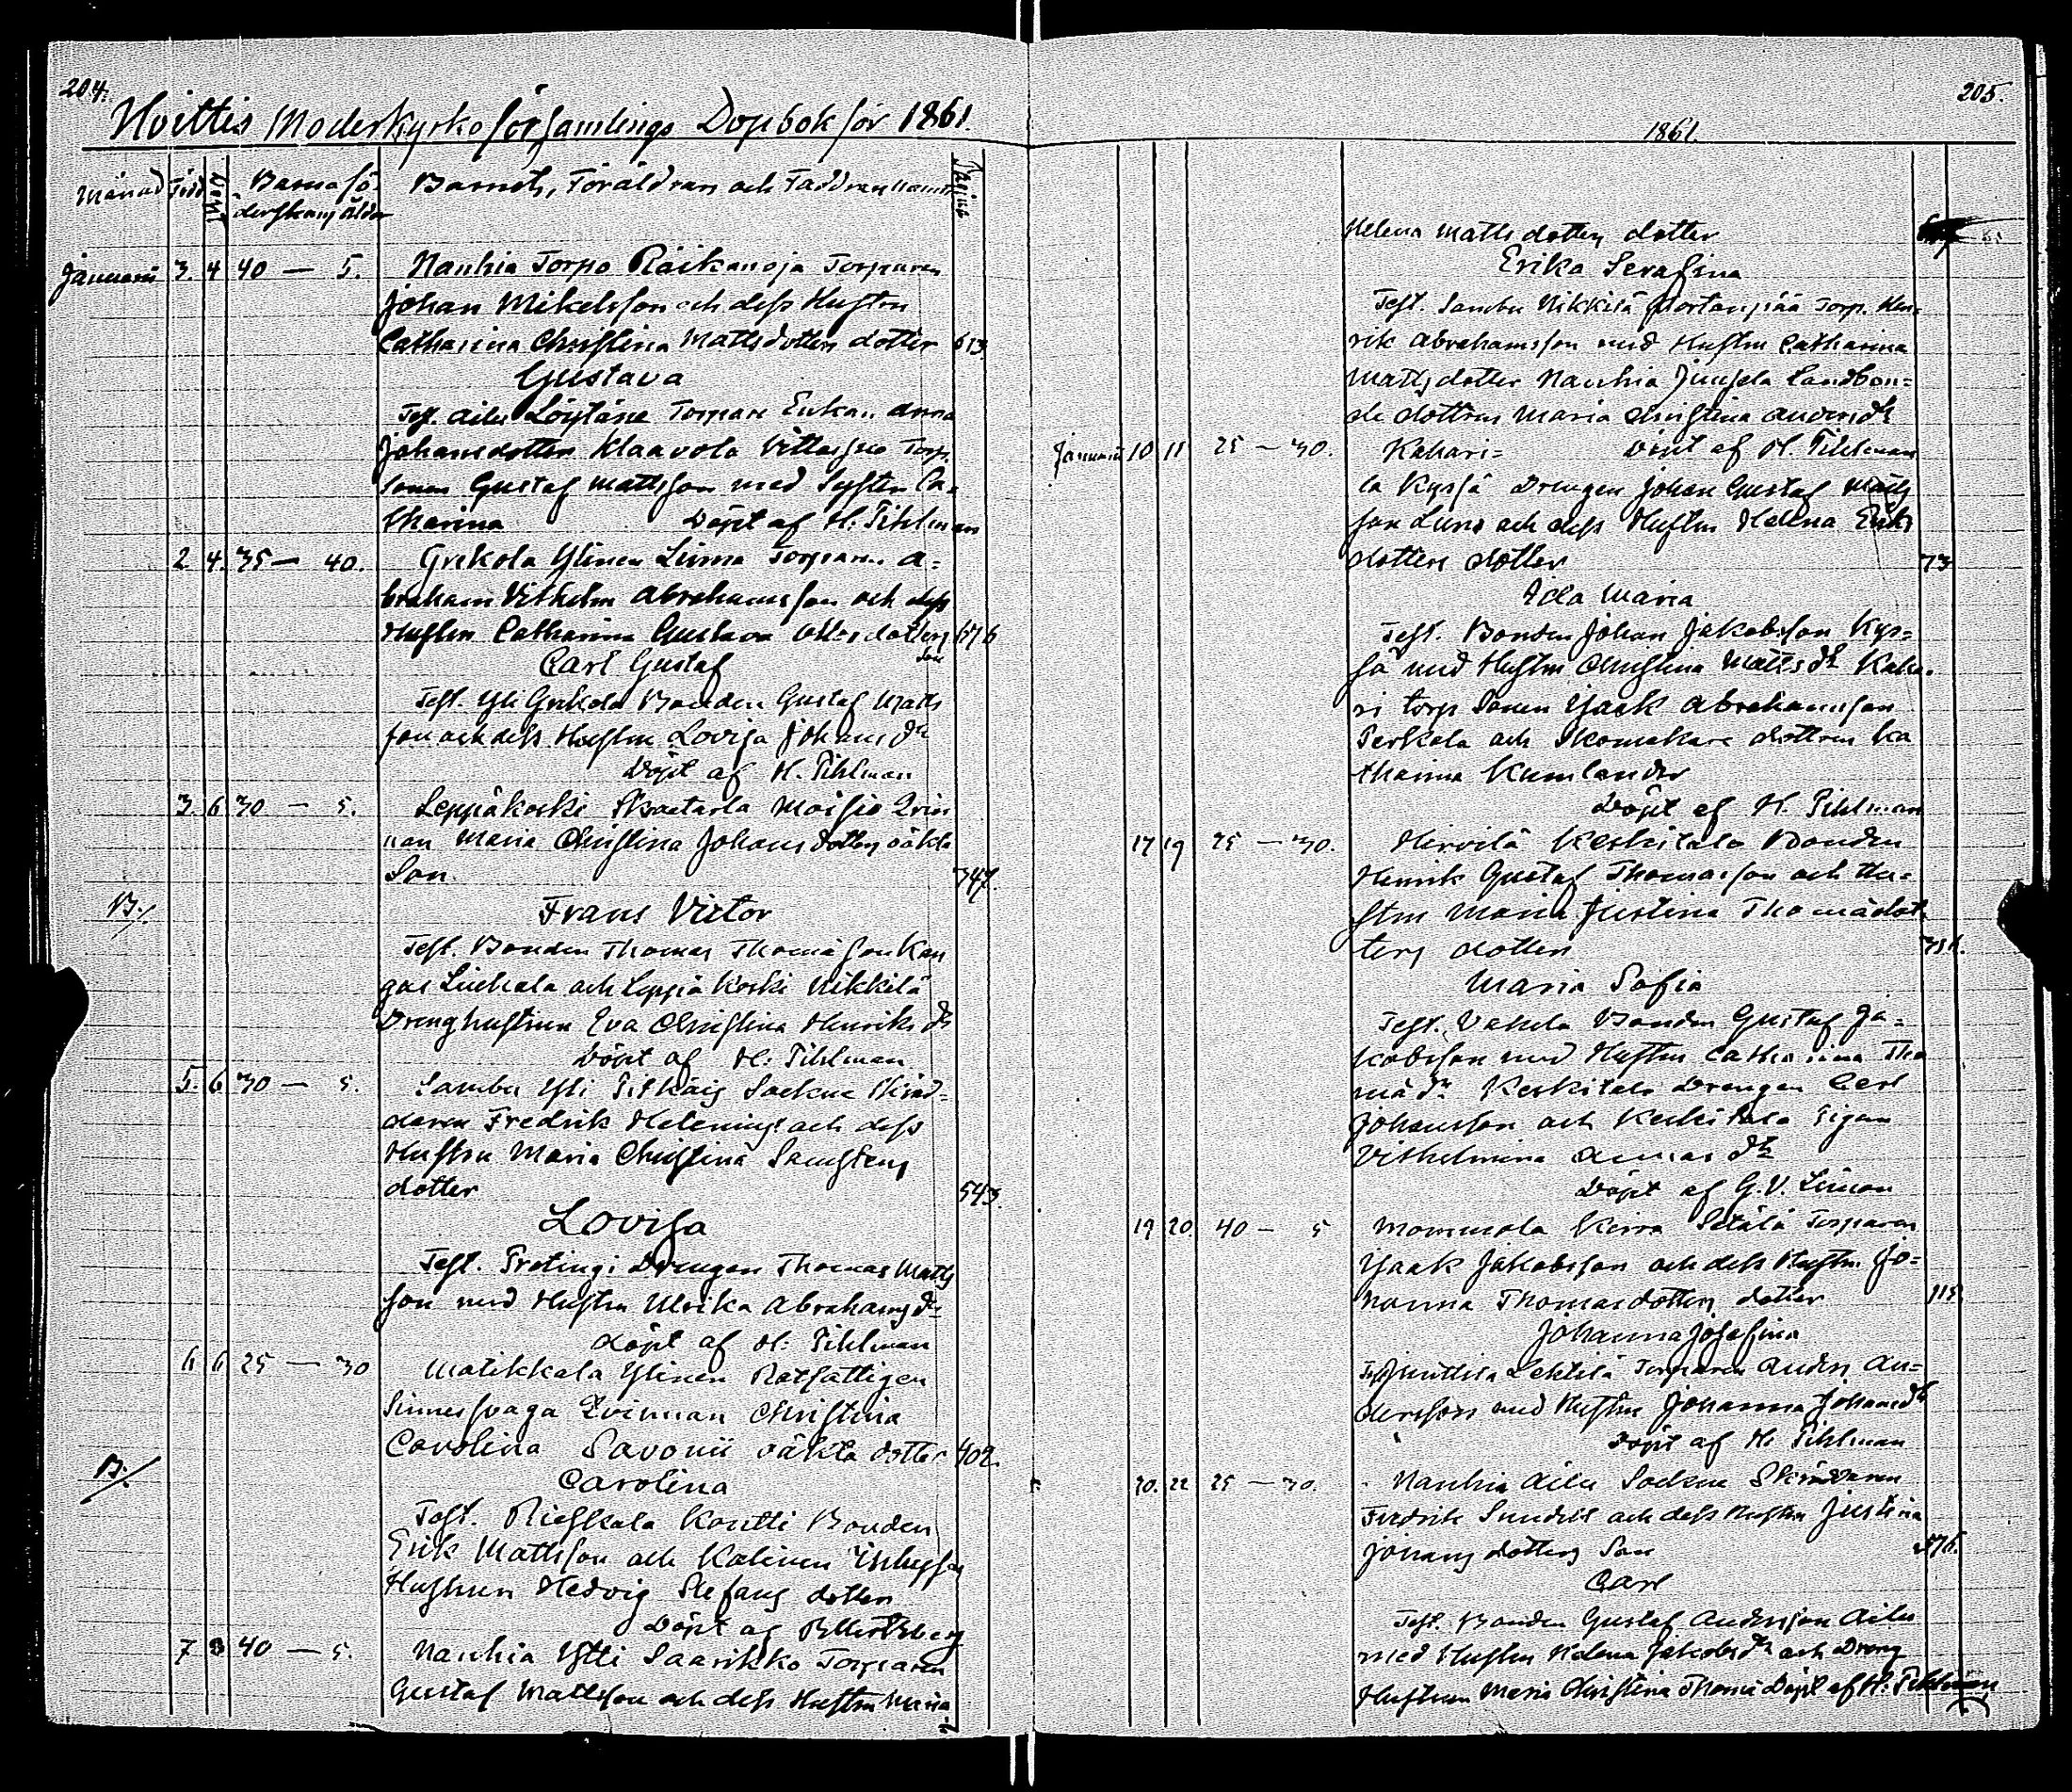 204.
Hvittis Moderkyrkoförsamlings Dopbok för 1861.
Månad Född Döpt Barnafö- Barnets, Föräldrars och Faddrars namn
derskans ålder
Januarii 3. 4 40 — 5. Nanhia Torpo Räikanoja Torparen
Johan Mikelsson och dess Hustru
Catharina Christina Mattsdotters dotter 613.
Gustava
Test. Ailu Löytäne Torpare Enkan Anna
Johansdotter Klaavola Torp.
sonen Gustaf Mattsson med Systen Ca-
tharina Döpt af H: Pihlman
2 4. 35 — 40. Grekola Ylinen Linna Torparen A-
braham Vilhelm Abrahamsson och dess
Hustru Catharina Gustava dotters 676
son
Carl Gustaf
Test. Yli Grekola Bonden Gustaf Matts
son och dess Hustru Lovisa Johans dr
Döpt af H. Pihlman
3. 6 30 — 5. Leppäkoski Moisio Qvin
nan Maria Christina Johans dotters oäkta
Son. 347.
B./ Frans Victor
Test. Bonden Thomas Thomasson Kan
gas Liukola och Leppäkoski Nikkilä
Dreng hustrun Eva Christina Henriks dr
Döpt af H: Pihlman
5. 6 30 — 5. Sambu Yli Pitkäis Sockne Skräd-
daren Fredrik Helenius och dess
Hustru Maria Christina
dotter 543.
Lovisa
Test. Drengen Thomas Matts
son med Hustru Ulrika Abrahams dr
Döpt af H: Pihlman
6 6 25 — 30 Matikkala Ylinen Rotfattigen
Sinnessvaga Qvinnan Christina
Carolina Savonii oäkta dotter 402.
B./ Carolina
Test. Rieskala Kontti Bonden
Erik Mattsson och Kalinen
Hustrun Hedvig Stefans dotter
Döpt af
7 8 40 — 5. Nanhia Ylli Saarikko Torparen
Gustaf Mattsson och dess Hustru Maria
205.
1861.
Helena Matts dotters dotter
Erika Serafina
Test. Sambu Nikkilä Torp. Hen-
rik Abrahamsson med Hustru Catharina
Matts dotter Nanhia Junsela Landbon-
de dottren Maria Christina Anders dr
Januarii 10 11 25 — 30. Kahari- Döpt af H. Pihlman
la Kyssä Drengen Johan Gustaf Matts
son Lund och dess Hustru Helena Eriks
dotters dotter 73
Ida Maria
Test. Bonden Johan Jakobsson Kys-
sä med Hustru Christina Matts dr Kaha-
ri torp Sonen Isaak Abrahamsson
Perkola och Skomakare dottren Ka
tharina Kumlander
Döpt af H. Pihlman
17 19 25 — 30. Hirvilä Keskitalo Bonden
Henrik Gustaf Thomasson och Hu-
stru Maria Justina Thomædot-
ters dotter 351.
Maria Sofia
Test. Vakula Bonden Gustaf Ja-
kobsson med Hustru Catharina Tho
mæ dr Keskitalo Drengen Carl
Johansson och Keskitalo Pigan
Vilhelmina dr
Döpt af G. V. Limon
19 20. 40 — 5 Mommola Kirra Setälä Torparen
Isaak Jakobsson och dess Hustru Jo-
hanna Thomasdotters dotter 115.
Johanna Josefina
Test. Lehtilä Torparen Anders An-
dersson med Hustru Johanna Johans dr
Döpt af H. Pihlman
20. 22 25 — 30. Nanhia Ailu Sockne Skräddaren
Fredrik Sundell och dess Hustru Justina
Johans dotters Son 576.
Carl
Test. Bonden Gustaf Andersson Ailu
med Hustru Helena Jakobs dr och Dreng
Hustrun Maria Christina Thomæ Döpt af H: Pihlman